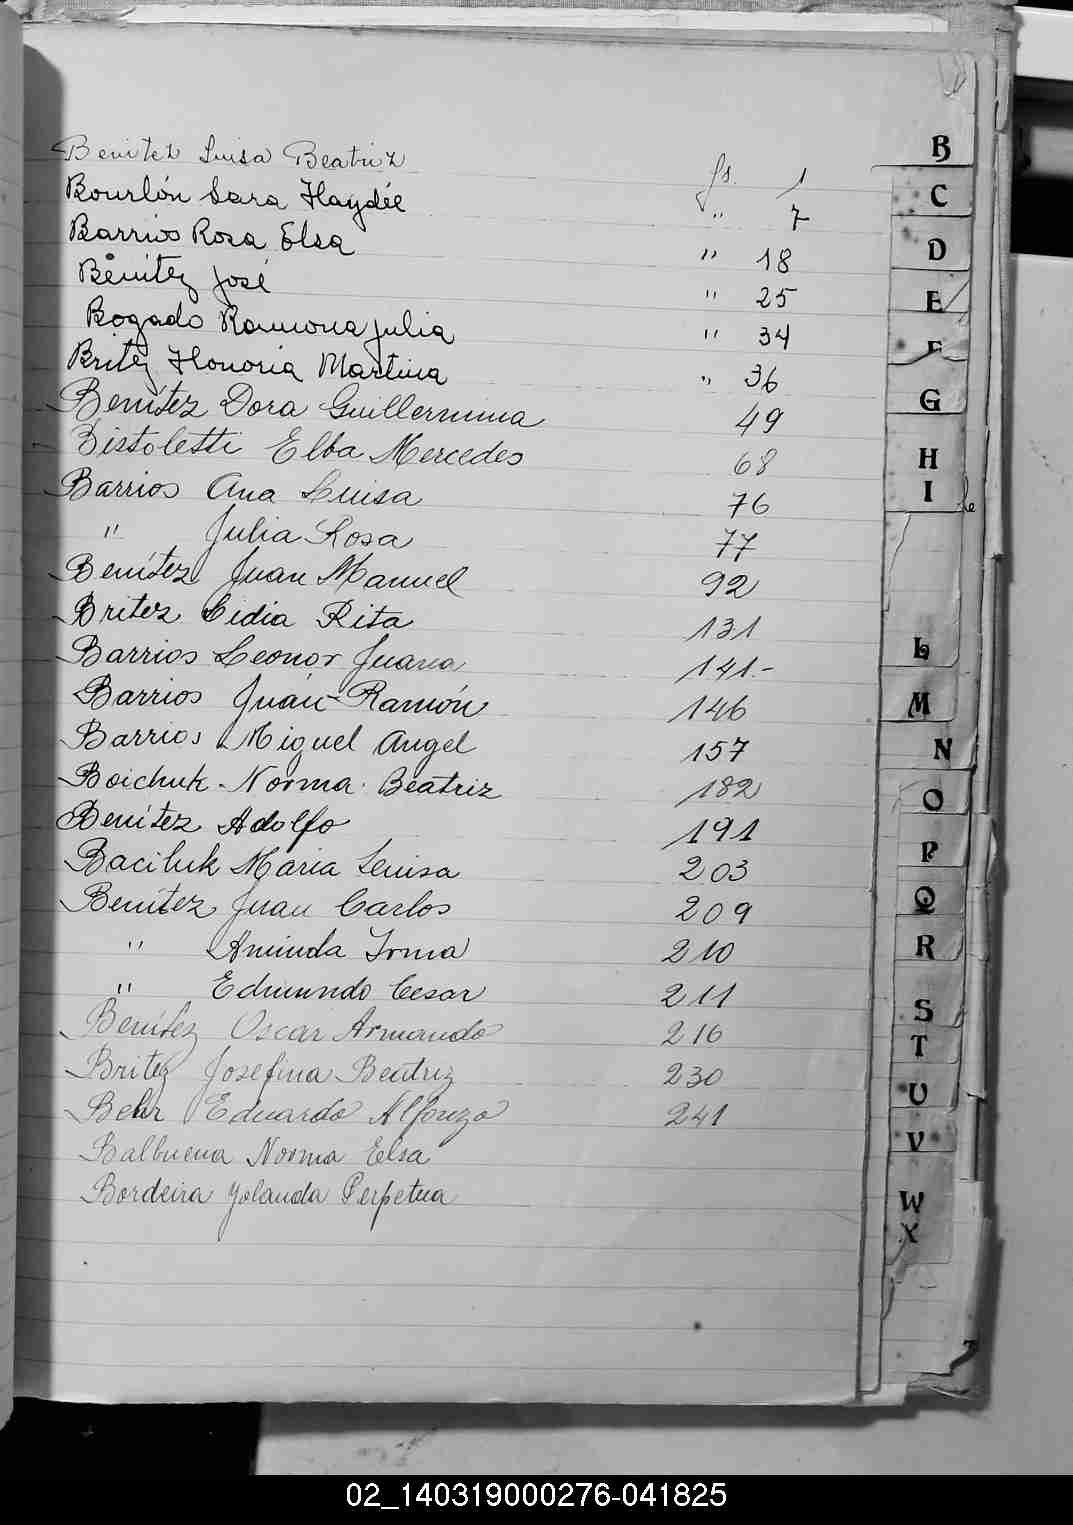 Benitez Luisa Beatriz fs. 1
Bourlón Sara Haydée " 7
Barrios Rosa Elsa " 18
Benítez José " 25
Bogado Ramona Julia " 34
Britez Honoria Martina " 36
Benítez Dora Guillermina 49
Bistoletti Elba Mercedes 68
Barrios Ana Luisa 76
" Julia Rosa 77
Benítez Juan Manuel 92
Britez Lidia Rita 131
Barrios Leonor Juana 141.-
Barrios Juan Ramón 146
Barrios Miguel Angel 157
Boichuk Norma Beatriz 182
Benítez Adolfo 191
Baciluk María Luisa 203
Benítez Juan Carlos 209
" Aminda Irma 210
" Edmundo Cesar 211
Benítez Oscar Armando 216
Britez Josefina Beatriz 230
Behr Eduardo Alfonzo 241
Balbuena Norma Elsa
Bordeira Yolanda Perpetua
B
C
D
E
F
G
H
I
L
M
N
O
P
Q
R
S
T
U
V
W
X
02_140319000276-041825